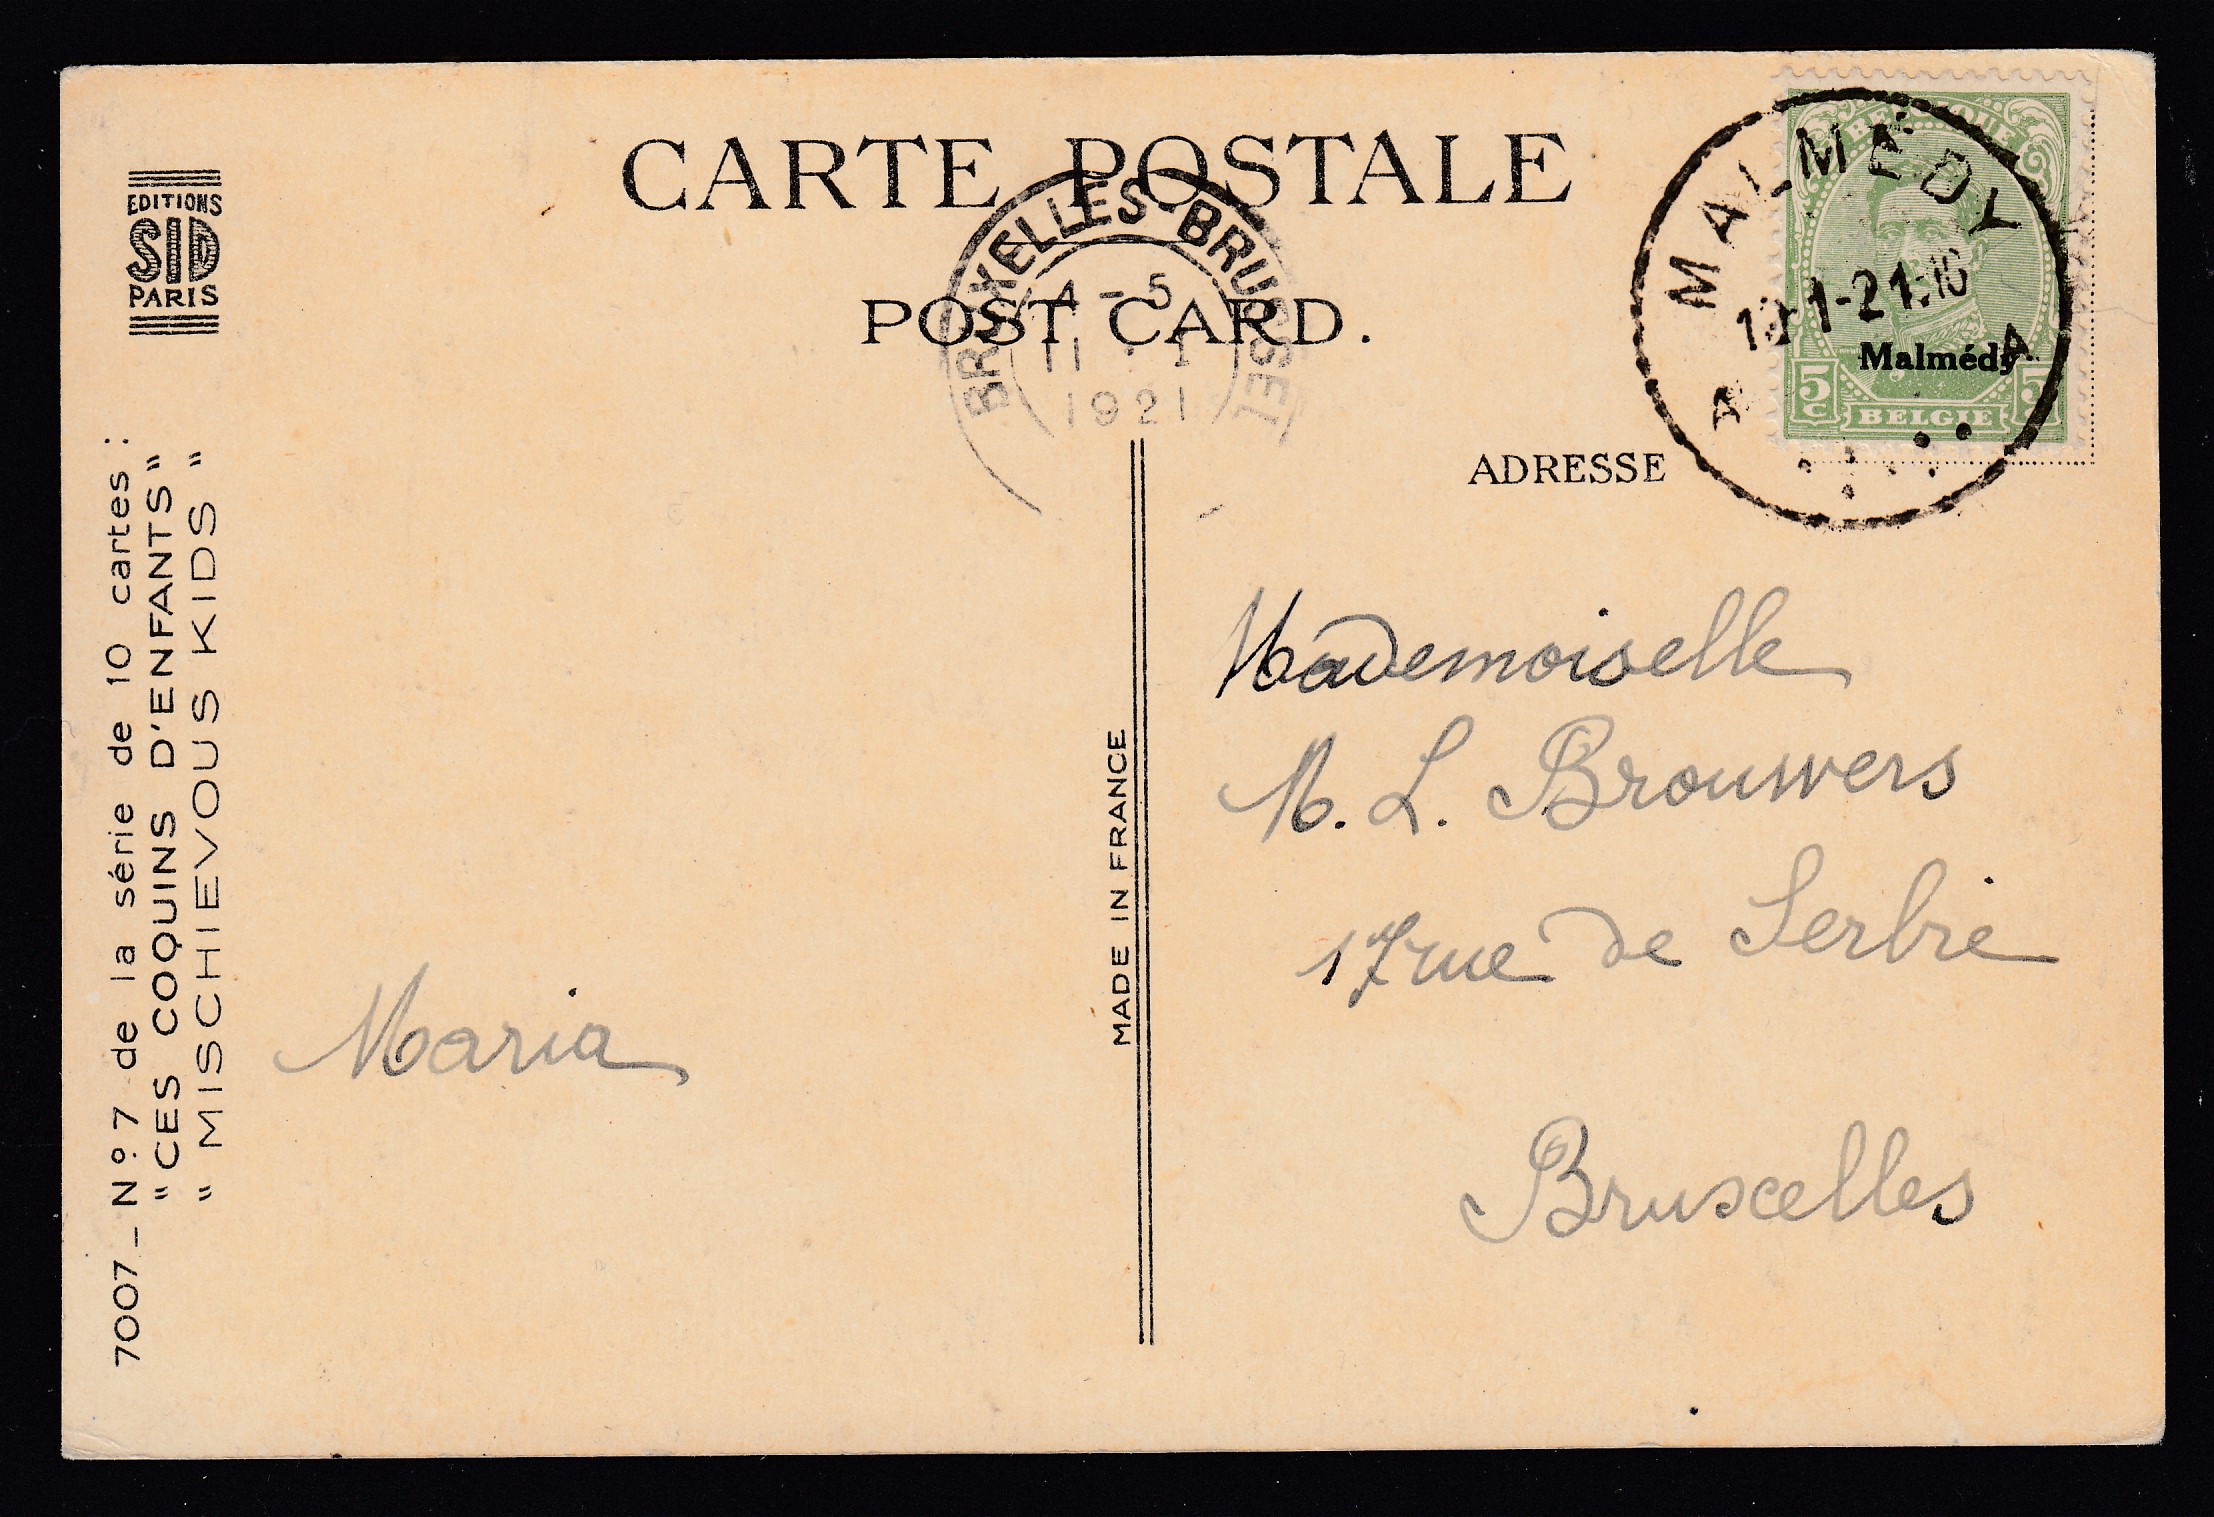 CARTE POSTALE
POST CARD.
BRUXELLES-BRUSSEL
4-5
11 · 1
1921
MALMEDY
1-21-16
A A
BELGIQUE
Malmédy
5 5
C
BELGIE
EDITIONS
SID
PARIS
7007_Nº 7 de la série de 10 cartes :
"CES COQUINS D'ENFANTS"
" MISCHIEVOUS KIDS "
Maria
MADE IN FRANCE
ADRESSE
Mademoiselle
M. L. Brouwers
17 rue de Serbie
Bruxelles